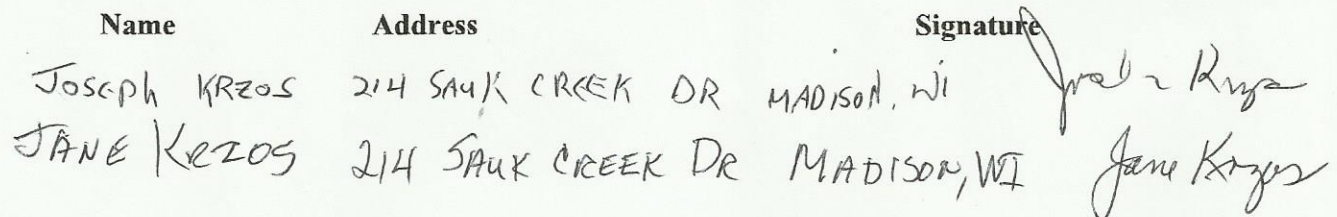 Name Address Signature
Joseph KRZOS 214 SAUK CREEK DR MADISON, WI
JANE KRZOS 214 SAUK CREEK DR MADISON, WI Jane Krzos